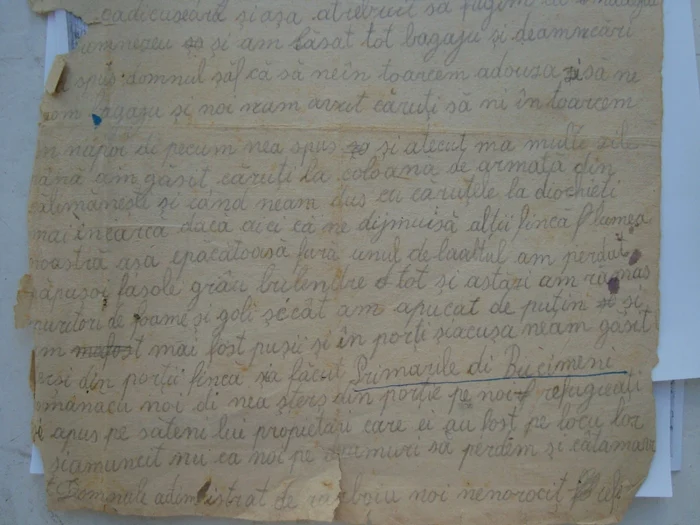 cadicuseară și așa atrebuit să fugim
și am lăsat tot bagaju și deamnecări
spus domnul săf că să neîn toarcem adouza zi să ne
bagaju și noi neam căruți să ni în toarcem
năpoi di pecum nea spus și atecut ma multe zile
până am găsit căruți la coloana de armata din
călimănești și când neam dus cu caruțele la diochieti
mai încarca dacă aici că ne dijmuisă alții finca lumea
noastră așa epăcătoasă fură unul de laaltul am perdut
păpușoi fasole grâu brilendre tot și astazi am rămas
muritori de foame și goli șicât am apucat de puțin și
am mai fost pușii și în porți siacusa neam găsit
din porții fincă sa făcut Primarile di Bucimeni
cu noi di nea șters din porție pe noi refagieați
apus pe săteni lui propietari care ei au lost pe locu lor
siamuncit nu ca noi pe drumuri să perdem și
Domnule adimistrat de noi nenorociț